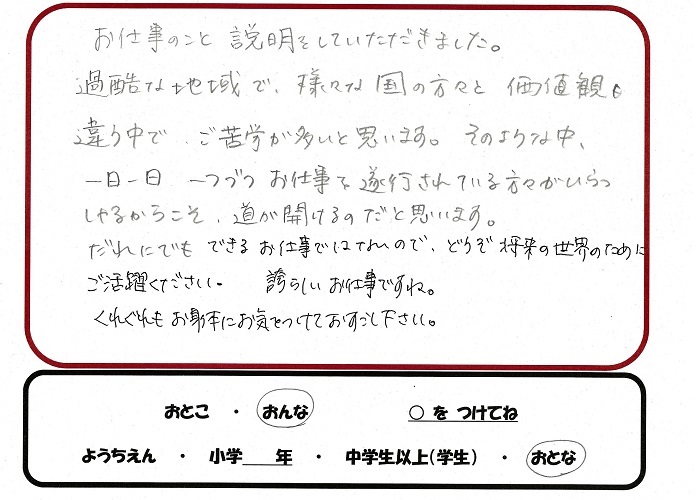 お仕事のこと 説明をしていただきました。
過酷な地域で、様々な国の方々と 価値観も
違う中で、ご苦労が多いと思います。そのような中、
一日一日 一つづつ お仕事を遂行されている方々がいらっ
しゃるからこそ、道が開けるのだと思います。
だれにでも できるお仕事ではないので、どうぞ将来の世界のために
ご活躍ください。 誇らしいお仕事ですね。
くれぐれもお身体にお気をつけてお過ごし下さい。
おとこ ・ おんな ○ を つけてね
ようちえん ・ 小学___年 ・ 中学生以上(学生) ・ おとな